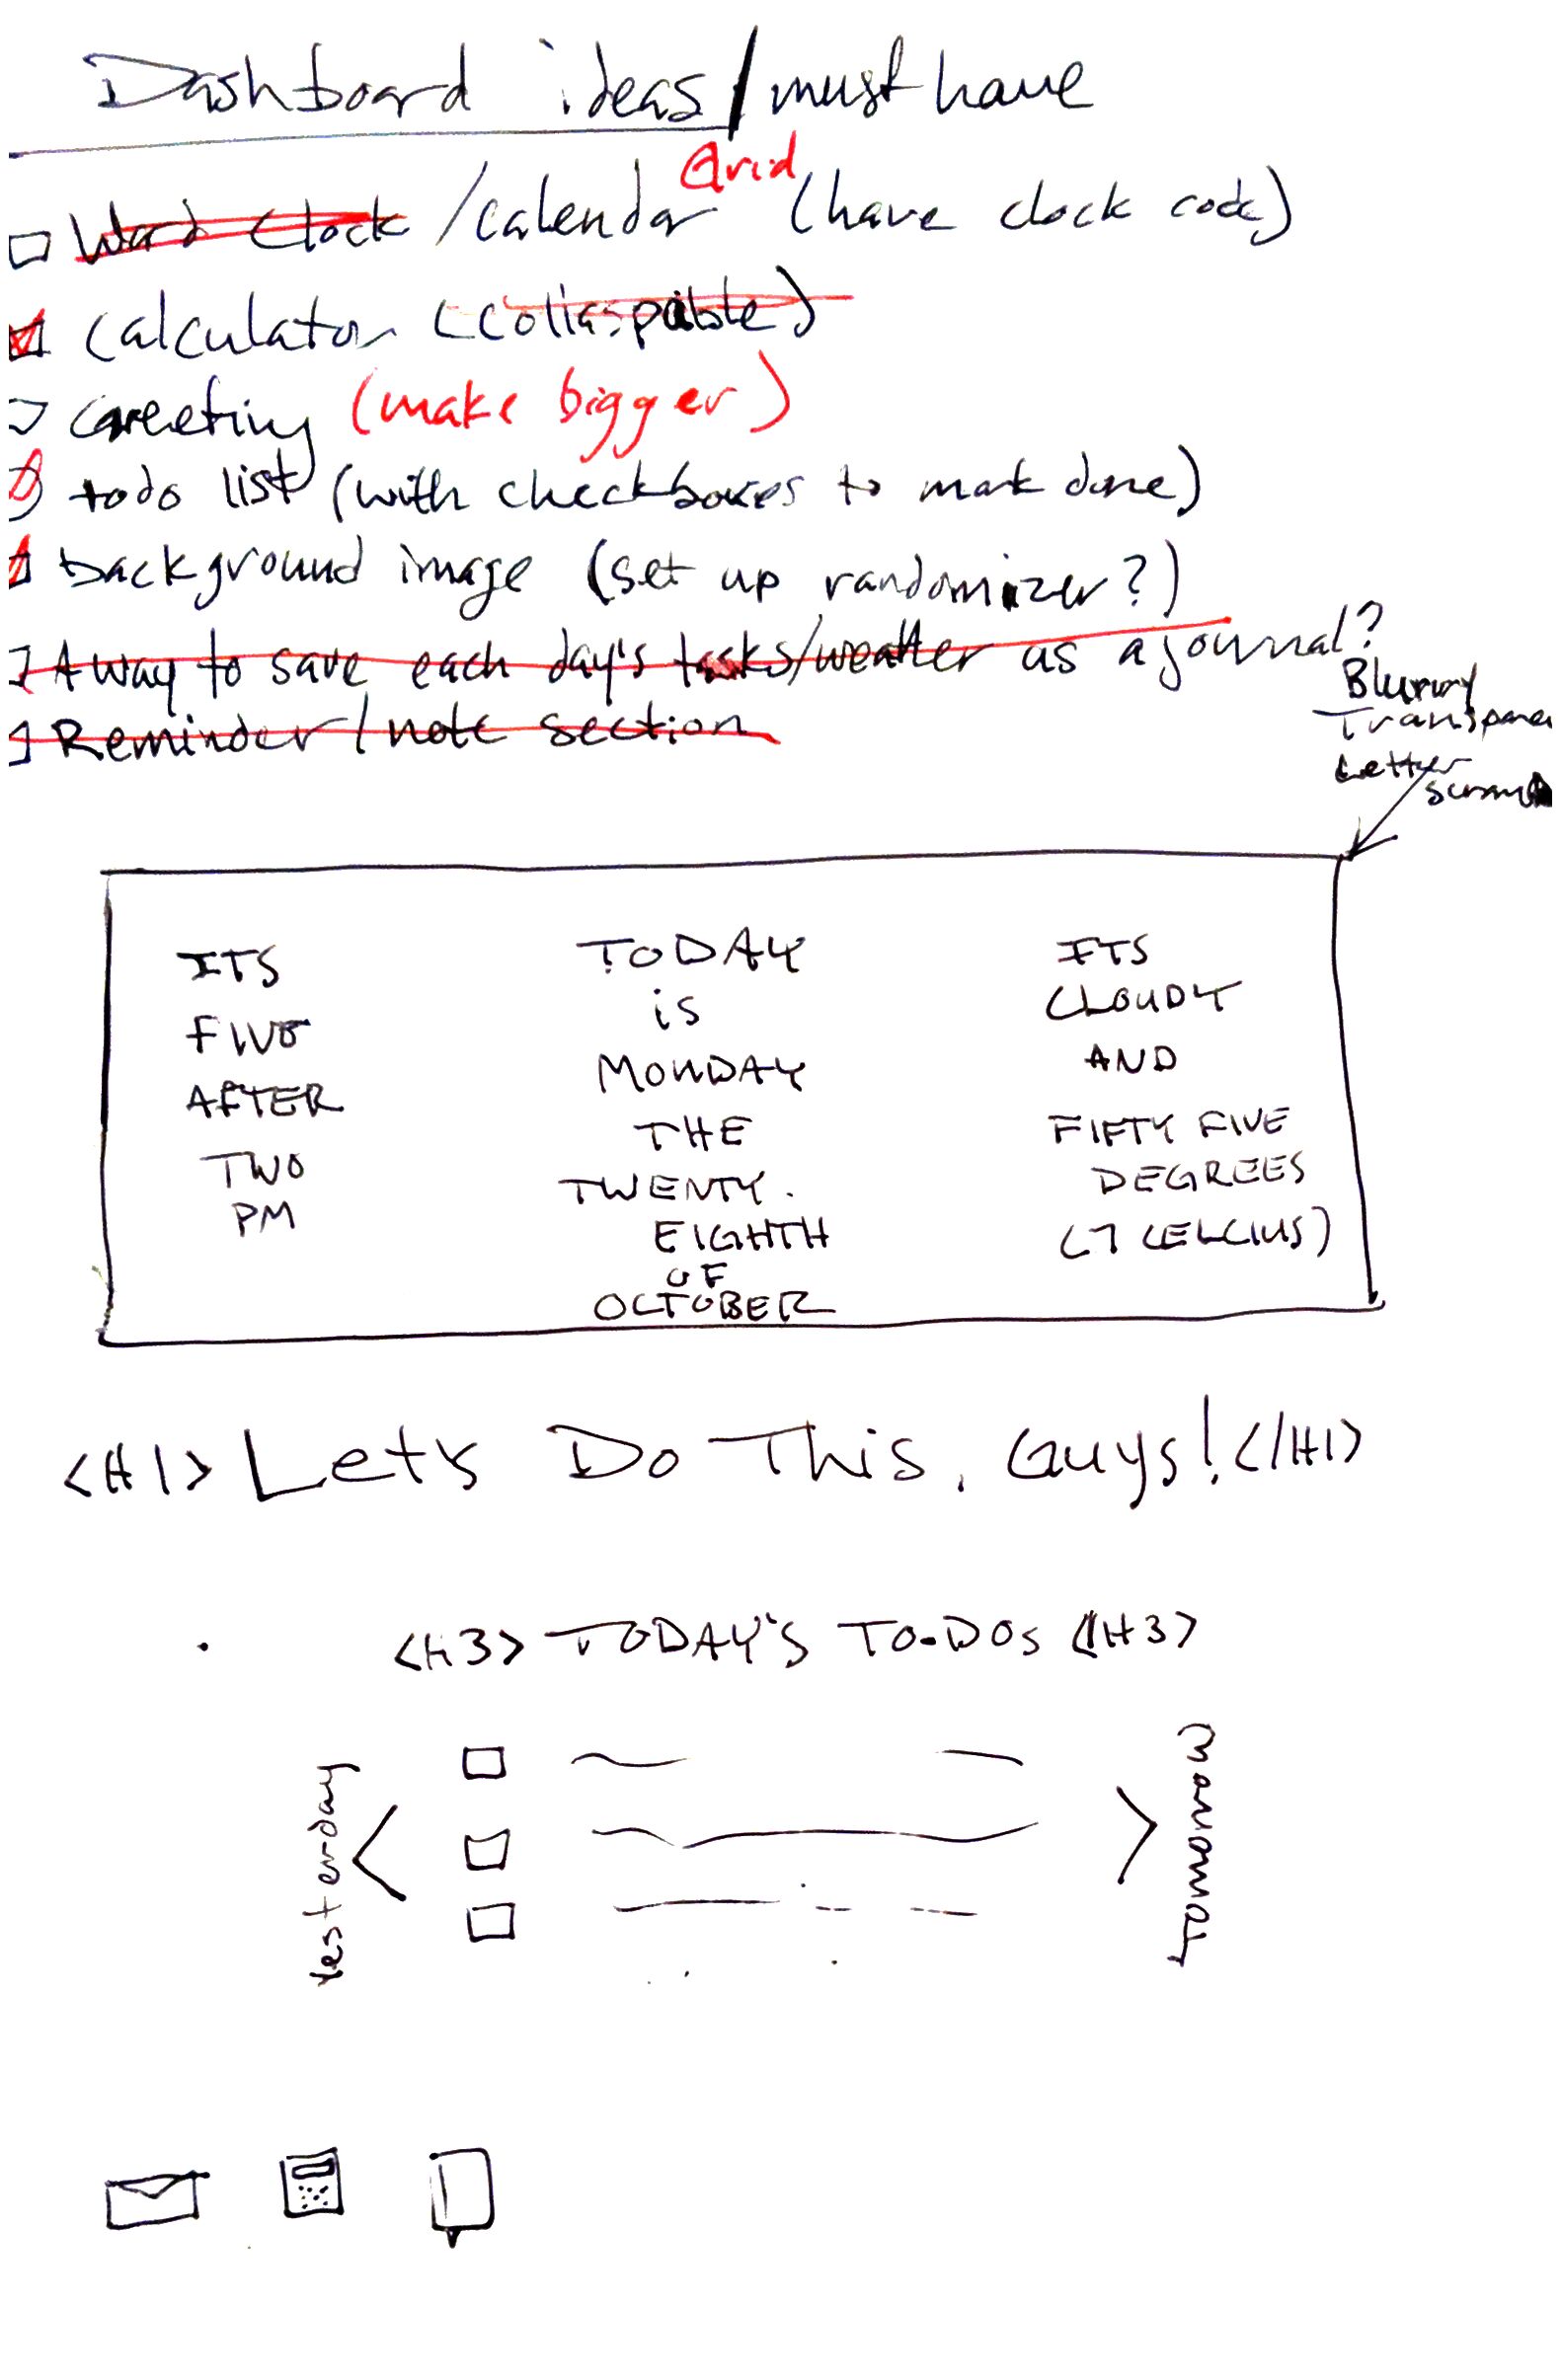 Dashboard ideas/must have
Word Clock /calendar Grid (have clock code)
calculator (collaspable)
Greeting (make bigger)
todo list (with checkboxes to mark done)
background image (set up randomizer?)
A way to save each day's tasks/weather as a journal?
Reminder/note section
Blurry
Letter
ITS
FIVE
AFTER
TWO
PM
TODAY
is
MONDAY
THE
TWENTY.
EIGHTH
OF
OCTOBER
ITS
CLOUDY
AND
FIFTY FIVE
DEGREES
(7 CELCIUS)
<H1> Let's Do This, Guys! </H1>
<H3> TODAY'S TO-DOs </H3>
Yesterday
<
>
Tomorrow